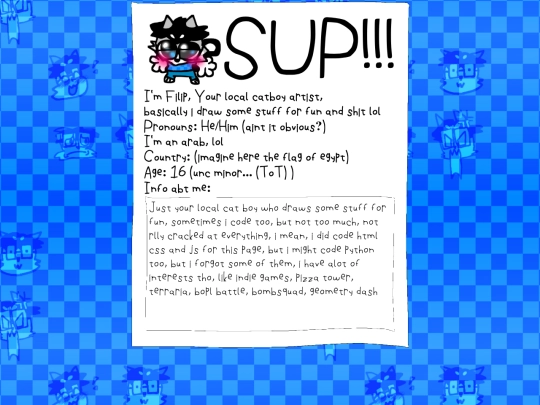 SUP!!!
I'm Filip, Your local catboy artist,
basically i draw some stuff for fun and shit lol
Pronouns: He/Him (aint it obvious?)
I'm an arab, lol
Country: (imagine here the flag of egypt)
Age: 16 (unc minor... (ToT) )
Info abt me:
Just your local cat boy who draws some stuff for
fun, sometimes i code too, but not too much, not
rlly cracked at everything, i mean, i did code html
css and js for this page, but i might code Python
too, but i forgot some of them, i have alot of
interests tho, like indie games, pizza tower,
terraria, bopl battle, bombsquad, geometry dash